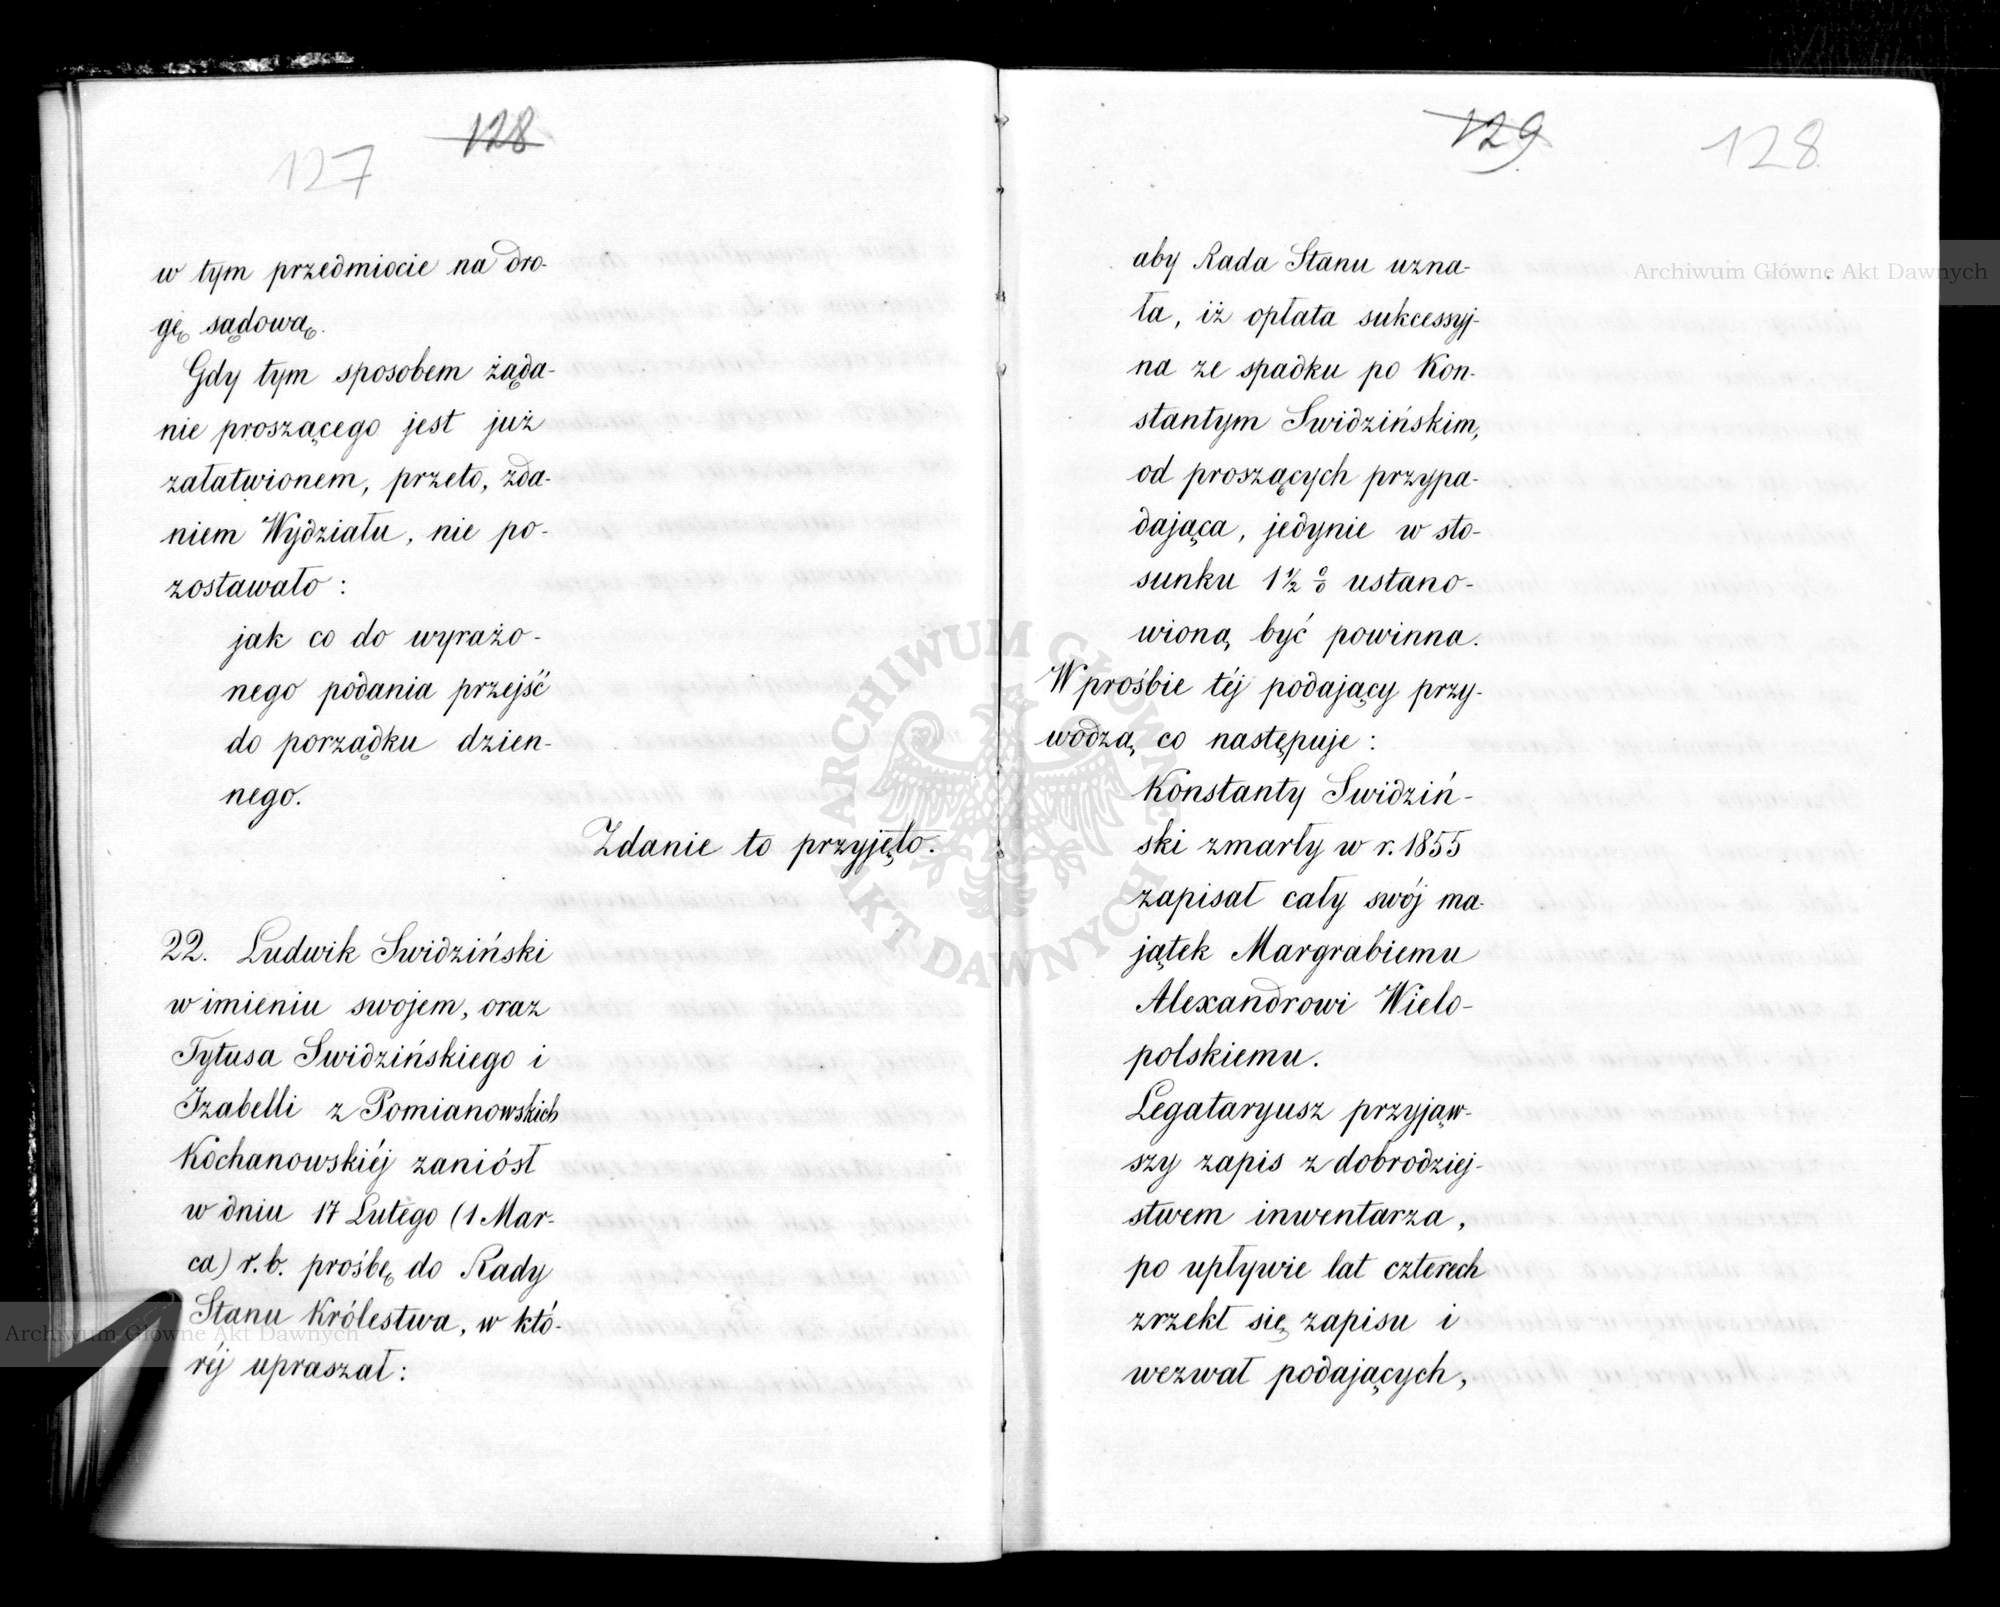 128
127
w tym przedmiocie na dro-
gę sądową.
Gdy tym sposobem żąda-
nie proszącego jest już
załatwionem, przeto, zda-
niem Wydziału, nie po-
zostawało:
jak co do wyrażo-
nego podania przejść
do porządku dzien-
nego.
Zdanie to przyjęto.
22. Ludwik Swidziński
w imieniu swojem, oraz
Tytusa Swidzińskiego i
Izabelli z Pomianowskich
Kochanowskiéj zaniósł
w dniu 17 Lutego (1 Mar-
ca) r. b. prośbę do Rady
Stanu Królestwa, w któ-
réj upraszał:
129
128
aby Rada Stanu uzna-
ła, iż opłata sukcessyj-
na ze spadku po Kon-
stantym Swidzińskim,
od proszących przypa-
dająca, jedynie w sto-
sunku 1½ % ustano-
wioną być powinna.
W prośbie téj podający przy-
wodzą co następuje:
Konstanty Swidziń-
ski zmarły w r. 1855
zapisał cały swój ma-
jątek Margrabiemu
Alexandrowi Wielo-
polskiemu.
Legataryusz przyjąw-
szy zapis z dobrodziej-
stwem inwentarza,
po upływie lat czterech
zrzekł się zapisu i
wezwał podających,
Archiwum Główne Akt Dawnych
ARCHIWUM GŁÓWNE
AKT DAWNYCH
Archiwum Główne Akt Dawnych